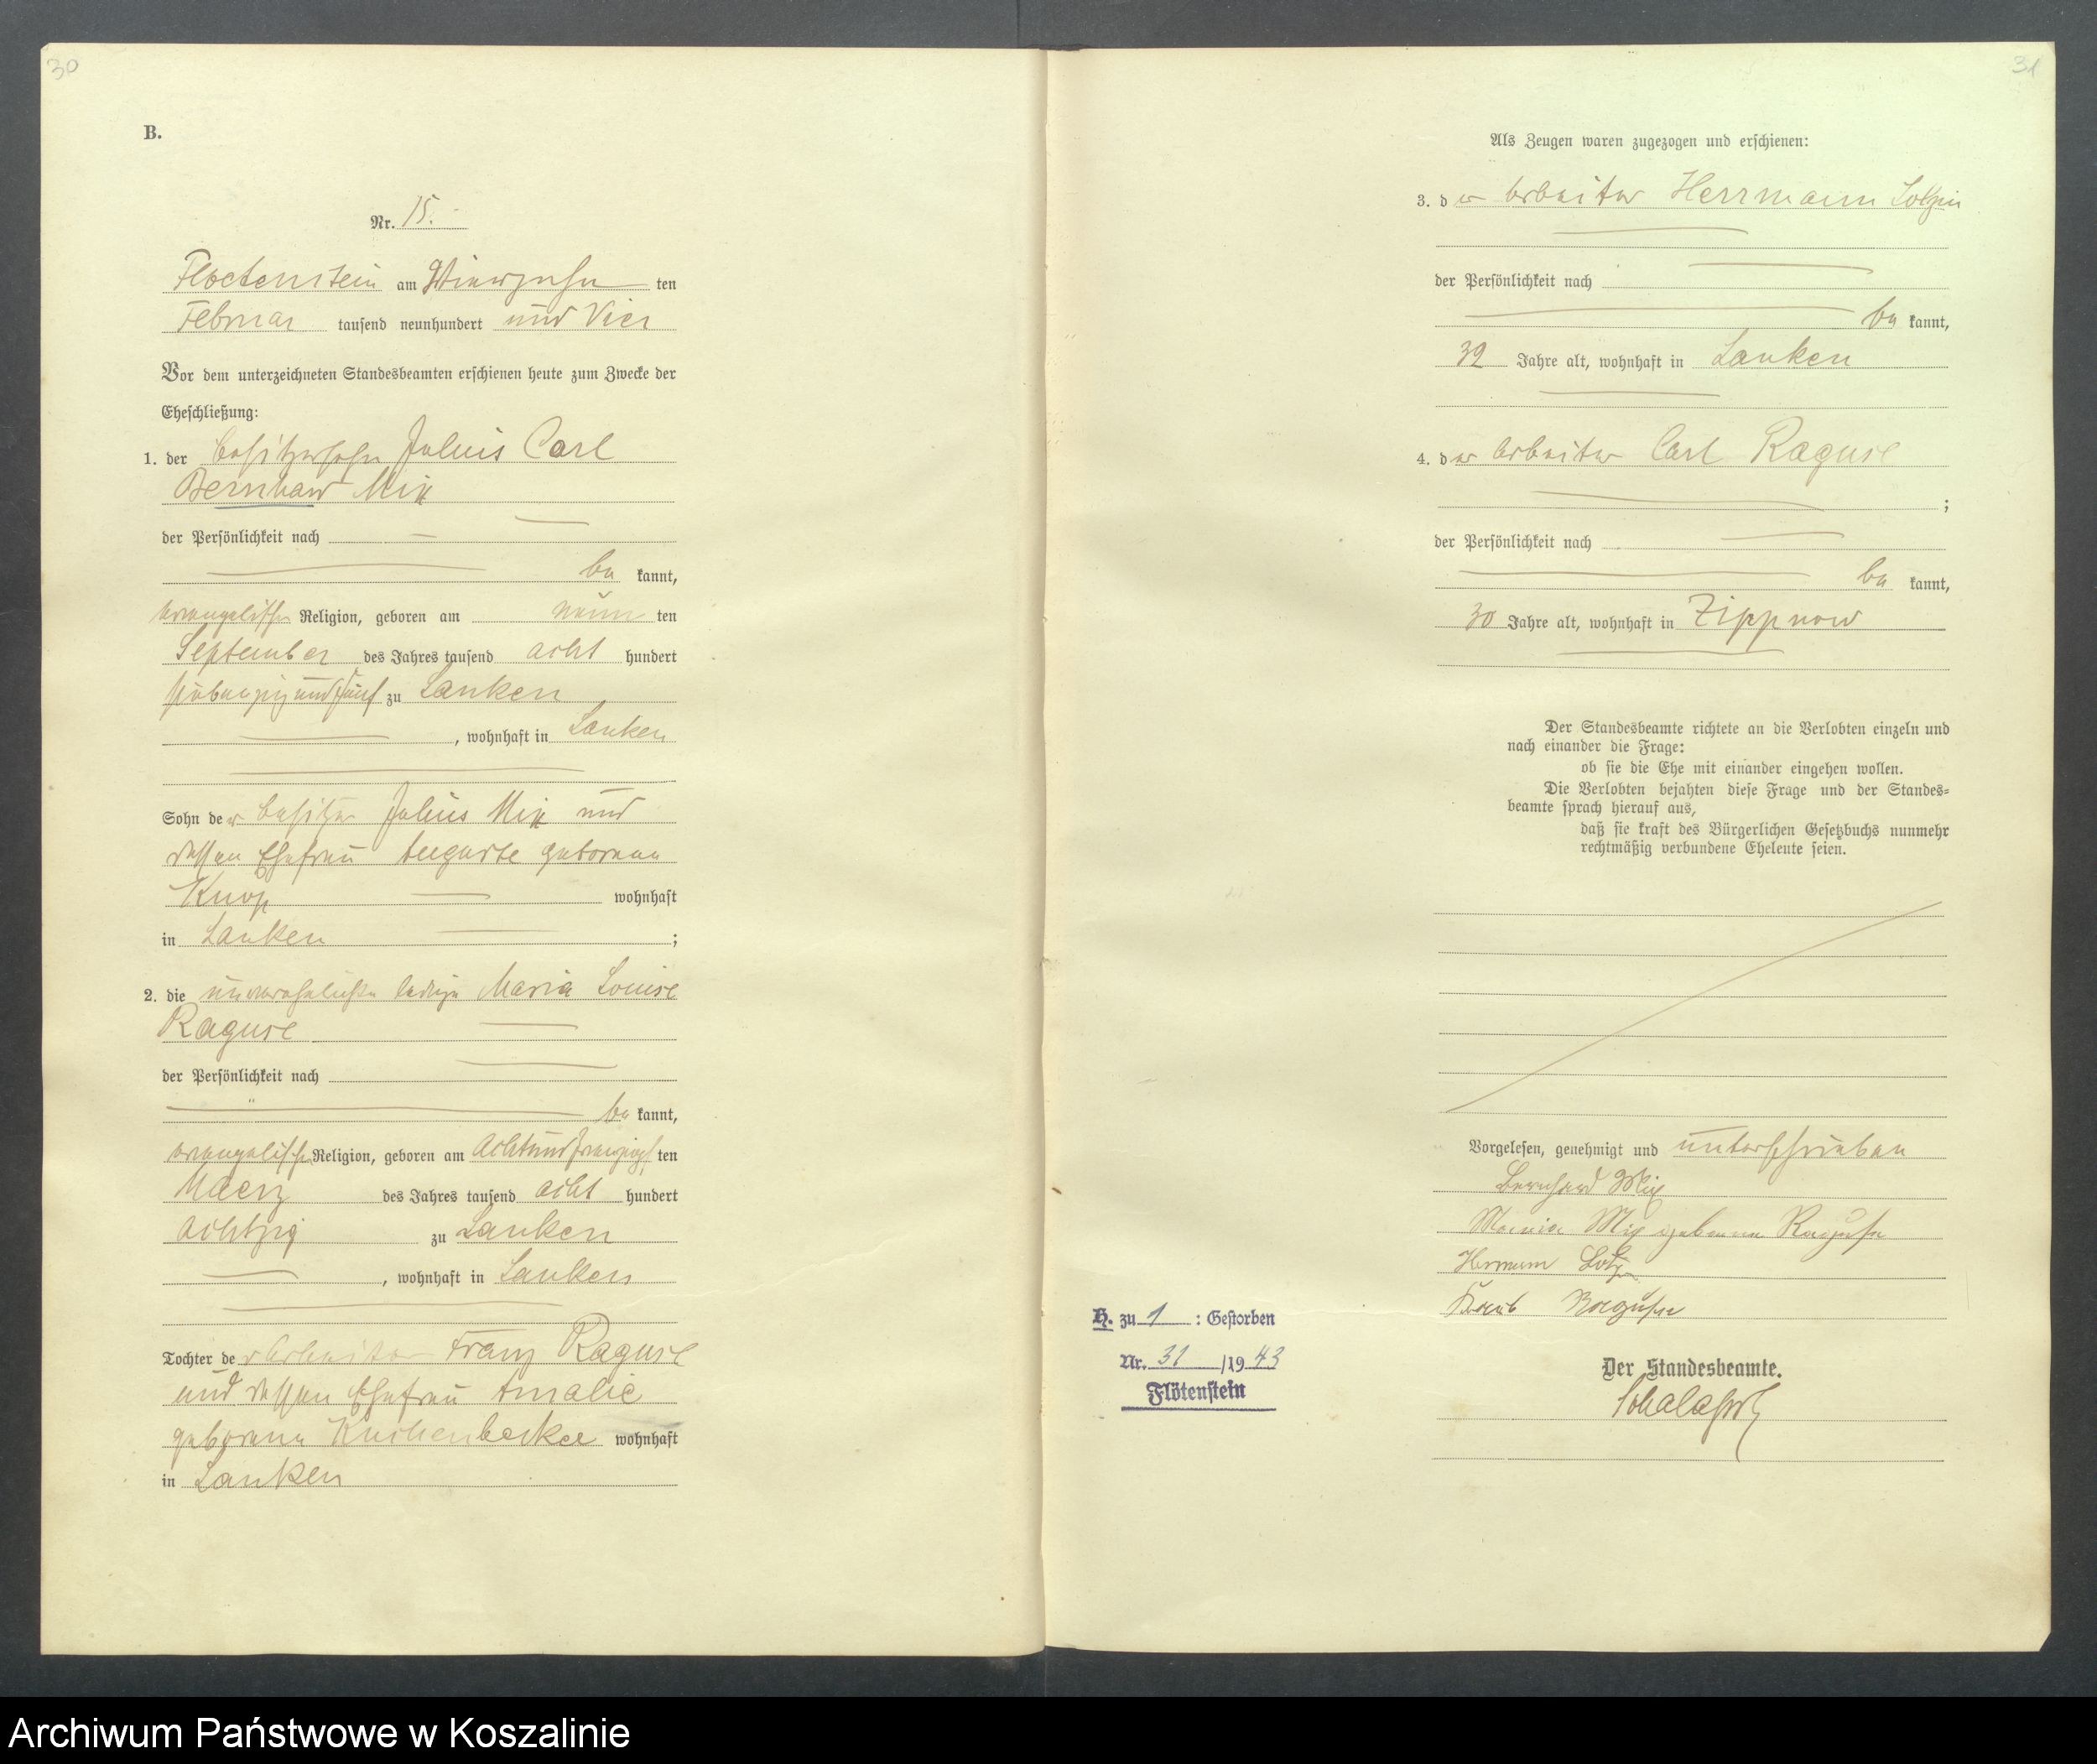 30
B.
Nr. 15.
Floetenstein am Vierzehn ten
Februar tausend neunhundert und Vier
Vor dem unterzeichneten Standesbeamten erschienen heute zum Zwecke der
Eheschließung:
1. der Besitzersohn Julius Carl
Bernhard Mix
der Persönlichkeit nach
be kannt,
evangelischer Religion, geboren am neun ten
September des Jahres tausend acht hundert
siebenzig und fünf zu Lanken
, wohnhaft in Lanken
Sohn der Besitzer Julius Mix und
dessen Ehefrau Auguste geborene
Knop wohnhaft
in Lanken ;
2. die unverehelichte ledige Maria Louise
Raguse
der Persönlichkeit nach
be kannt,
evangelischer Religion, geboren am Achtundzwanzigs ten
Maerz des Jahres tausend acht hundert
Achtzig zu Lanken
, wohnhaft in Lanken
Tochter der Arbeiter Franz Raguse
und dessen Ehefrau Amalie
geborene Kuchenbecker wohnhaft
in Lanken
31
Als Zeugen waren zugezogen und erschienen:
3. der Arbeiter Herrmann
der Persönlichkeit nach
be kannt,
32 Jahre alt, wohnhaft in Lanken
4. der Arbeiter Carl Raguse
;
der Persönlichkeit nach
be kannt,
30 Jahre alt, wohnhaft in Zippnow
Der Standesbeamte richtete an die Verlobten einzeln und
nach einander die Frage:
ob sie die Ehe mit einander eingehen wollen.
Die Verlobten bejahten diese Frage und der Standes=
beamte sprach hierauf aus,
daß sie kraft des Bürgerlichen Gesetzbuchs nunmehr
rechtmäßig verbundene Eheleute seien.
Vorgelesen, genehmigt und unterschrieben
Bernhard Mix
Maria Mix geborene Raguse
Hermann
Karl Raguse
H. zu 1 : Gestorben
Nr. 31 /19 43
Flötenstein
Der Standesbeamte.
Archiwum Państwowe w Koszalinie